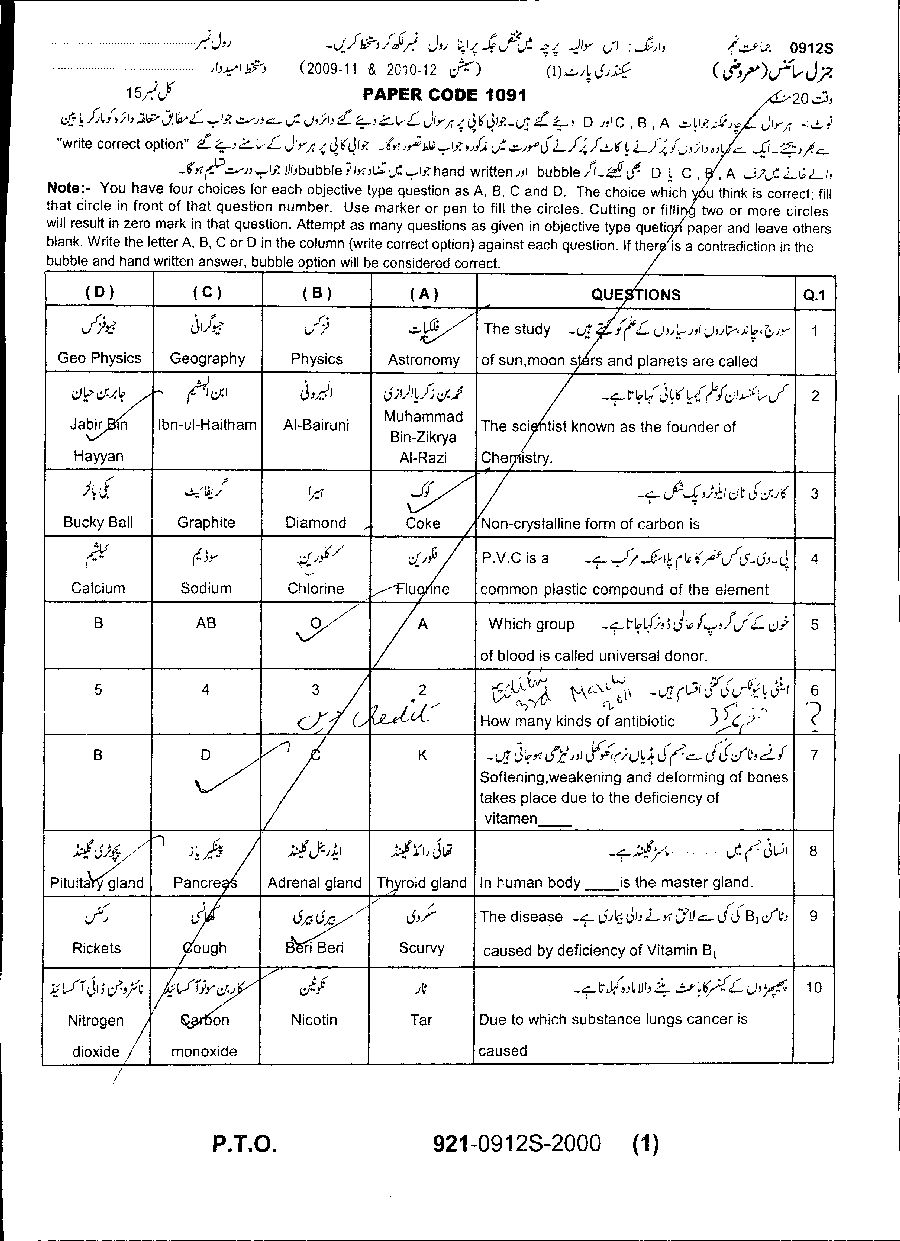 0912S جماعت نہم وارننگ: اس سوالیہ پرچہ میں مختص جگہ پر اپنا رول نمبر لکھ کر دستخط کریں۔ رول نمبر
جنرل سائنس (معروضی) سیکنڈری پارٹ (1) (سیشن 2010-12 & 2009-11) دستخط امیدوار
وقت 20 منٹ PAPER CODE 1091 کل نمبر 15
"write correct option"
Note:- You have four choices for each objective type question as A, B, C and D. The choice which you think is correct; fill
that circle in front of that question number. Use marker or pen to fill the circles. Cutting or filling two or more circles
will result in zero mark in that question. Attempt as many questions as given in objective type quetion paper and leave others
blank. Write the letter A, B, C or D in the column (write correct option) against each question. If there is a contradiction in the
bubble and hand written answer, bubble option will be considered correct.
(D) (C) (B) (A) QUESTIONS Q.1
جیوفزکس جیوگرافی فزکس فلکیات The study سورج، چاند، ستاروں اور سیاروں کے علم کو کہتے ہیں۔ 1
Geo Physics Geography Physics Astronomy of sun,moon stars and planets are called
جابر بن حیان ابن الہیثم البیرونی محمد بن زکریا الرازی کس سائنسدان کو علم کیمیا کا بانی کہا جاتا ہے۔ 2
Jabir Bin Ibn-ul-Haitham Al-Bairuni Muhammad The scientist known as the founder of
Bin-Zikrya
Hayyan Al-Razi Chemistry.
بکی بال گریفائیٹ ہیرا کوک کاربن کی نان ایلوٹروپک شکل ہے۔ 3
Bucky Ball Graphite Diamond Coke Non-crystalline form of carbon is
کیلشیم سوڈیم کلورین فلورین P.V.C is a پی۔وی۔سی کس عنصر کا عام پلاسٹک مرکب ہے۔ 4
Calcium Sodium Chlorine Fluorine common plastic compound of the element
B AB O A Which group خون کے کس گروپ کو عالمی ڈونر کہا جاتا ہے۔ 5
of blood is called universal donor.
5 4 3 2 3rd March 2011 اینٹی بائیوٹکس کی کتنی اقسام ہیں۔ 6
Credit How many kinds of antibiotic ?
B D C K کونسے وٹامن کی کمی سے جسم کی ہڈیاں نرم، کھوکھلی اور ٹیڑھی ہو جاتی ہیں۔ 7
Softening,weakening and deforming of bones
takes place due to the deficiency of
vitamen____
پچوٹری گلینڈ پینکریاز ایڈرینل گلینڈ تھائی رائڈ گلینڈ انسانی جسم میں ....... ماسٹر گلینڈ ہے۔ 8
Pituitary gland Pancreas Adrenal gland Thyroid gland In human body ____is the master gland.
رکٹس کھانسی بیری بیری سکروی The disease وٹامن B₁ کی کمی سے لاحق ہونے والی بیماری ہے۔ 9
Rickets Cough Beri Beri Scurvy caused by deficiency of Vitamin B₁
نائٹروجن ڈائی آکسائیڈ کاربن مونو آکسائیڈ نکوٹین ٹار پھیپھڑوں کے کینسر کا باعث بننے والا مادہ کہلاتا ہے۔ 10
Nitrogen Carbon Nicotin Tar Due to which substance lungs cancer is
dioxide monoxide caused
P.T.O. 921-0912S-2000 (1)